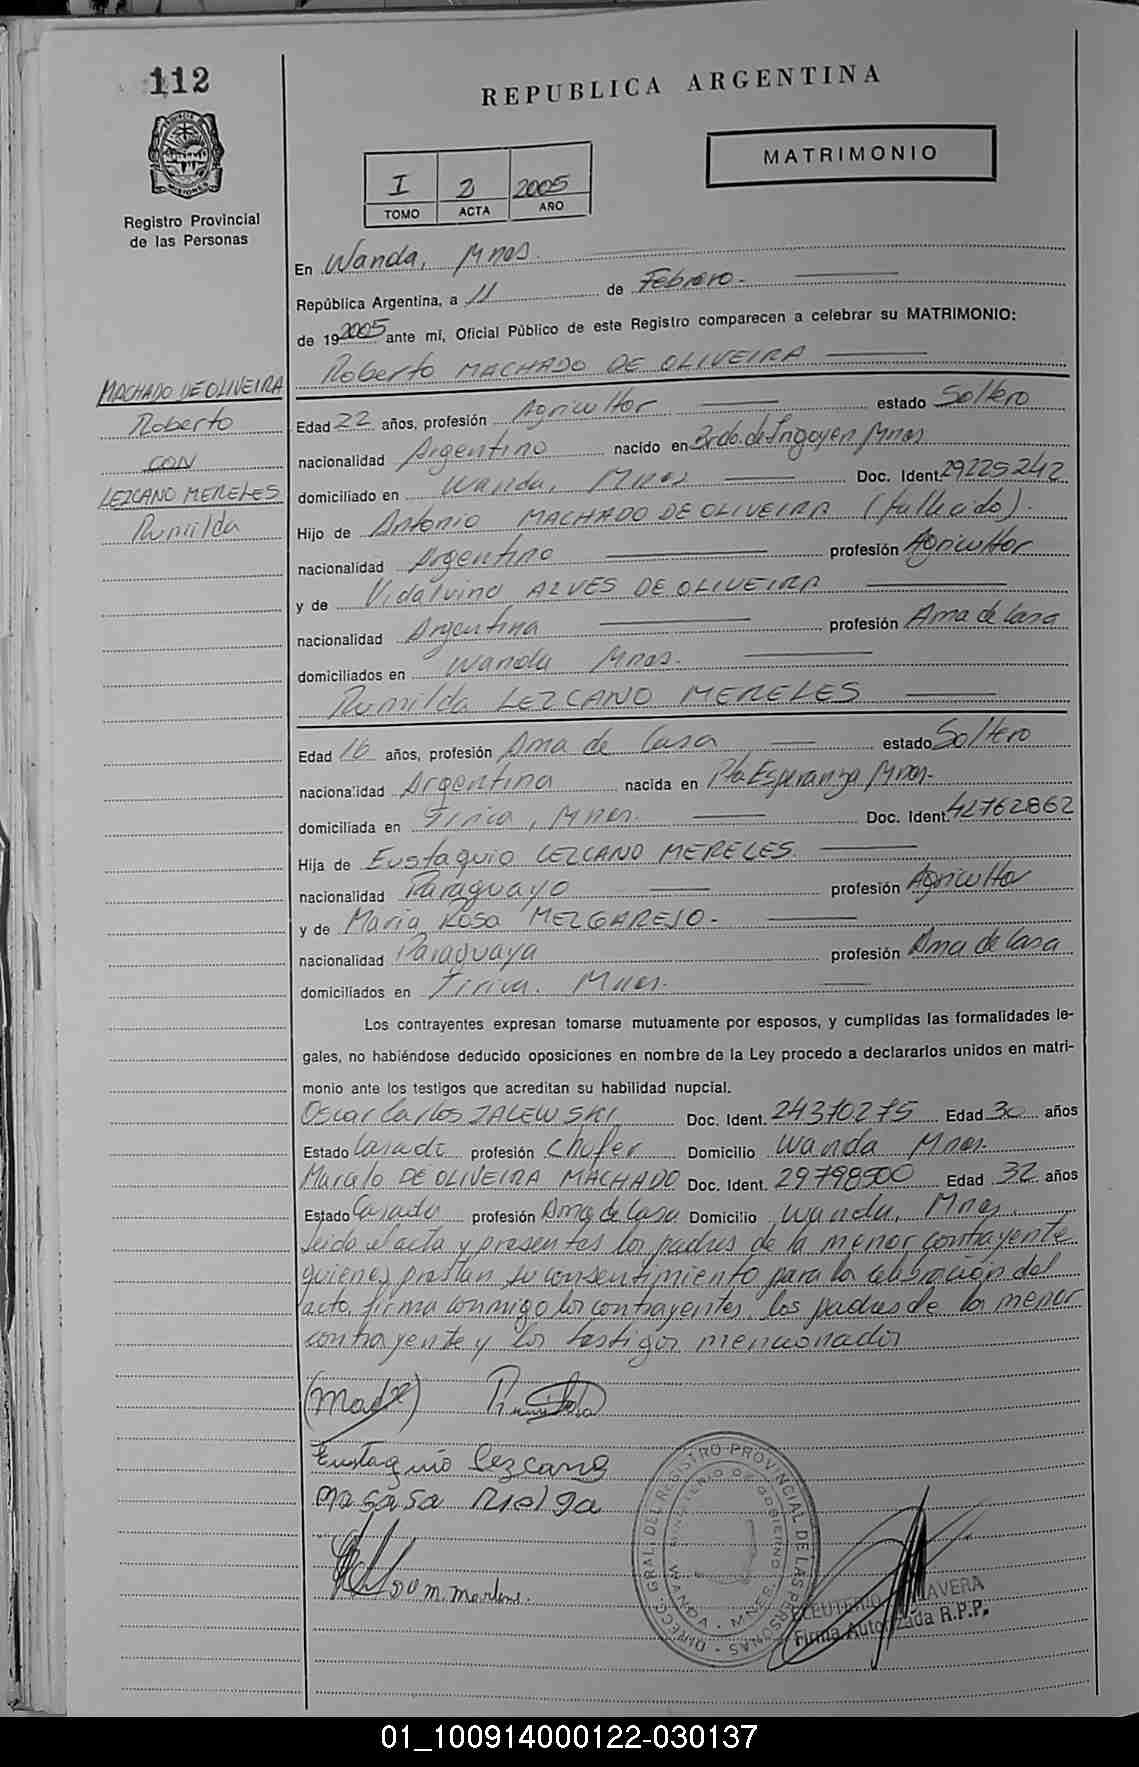 112
REPUBLICA ARGENTINA
MATRIMONIO
I 2 2005
TOMO ACTA AÑO
Registro Provincial
de las Personas
En Wanda, Mnes.
República Argentina, a 11 de Febrero.
de 192005 ante mí, Oficial Público de este Registro comparecen a celebrar su MATRIMONIO:
Roberto MACHADO DE OLIVEIRA
MACHADO DE OLIVEIRA
Roberto
CON
LEZCANO MERELES
Rumilda
Edad 22 años, profesión Agricultor estado Soltero
nacionalidad Argentino nacido en Brdo. de Irigoyen Mnes
domiciliado en Wanda, Mnes Doc. Ident. 29225242
Hijo de Antonio MACHADO DE OLIVEIRA (fallecido).
nacionalidad Argentino profesión Agricultor
y de Vidalvina ALVES DE OLIVEIRA
nacionalidad Argentina profesión Ama de Casa
domiciliados en Wanda Mnes.
Rumilda LEZCANO MERELES
Edad 16 años, profesión Ama de Casa estado Soltero
nacionalidad Argentina nacida en Pto Esperanza Mnes.
domiciliada en Tirica, Mnes. Doc. Ident. 42762862
Hija de Eustaquio LEZCANO MERELES.
nacionalidad Paraguayo profesión Agricultor
y de Maria Rosa MELGAREJO.
nacionalidad Paraguaya profesión Ama de Casa
domiciliados en Tirica. Mnes.
Los contrayentes expresan tomarse mutuamente por esposos, y cumplidas las formalidades le-
gales, no habiéndose deducido oposiciones en nombre de la Ley procedo a declararlos unidos en matri-
monio ante los testigos que acreditan su habilidad nupcial.
Oscar Carlos ZALEWSKI Doc. Ident. 24370275 Edad 30 años
Estado Casado profesión Chofer Domicilio Wanda Mnes.
Marcelo DE OLIVEIRA MACHADO Doc. Ident. 29798500 Edad 32 años
Estado Casado profesión Ama de Casa Domicilio Wanda, Mnes.
Leida el acta y presentes los padres de la menor contrayente
quienes prestan su consentimiento para la celebración del
acto, firma conmigo los contrayentes, los padres de la menor
contrayente y los testigos mencionados
(Madre) Rumilda
Eustaquio Lezcano
DIRECC. GRAL. DEL REGISTRO PROVINCIAL DE LAS PERSONAS
MINISTERIO DE GOBIERNO
WANDA - MNES.
ELEUTERIO AVERA
Firma Autorizada R.P.P.
01_100914000122-030137